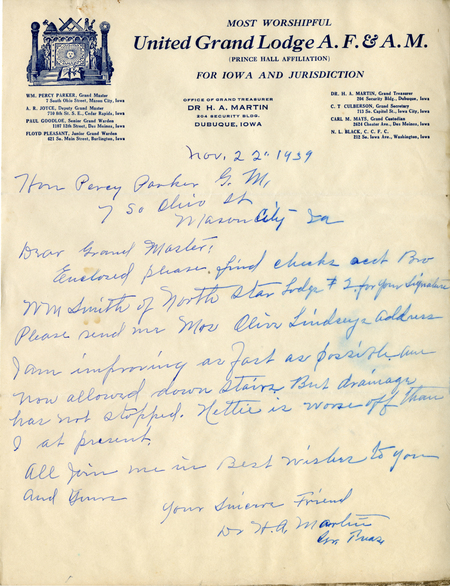 MOST WORSHIPFUL
United Grand Lodge A. F. & A. M.
(PRINCE HALL AFFILIATION)
FOR IOWA AND JURISDICTION
WM. PERCY PARKER, Grand Master
7 South Ohio Street, Mason City, Iowa
A. R. JOYCE, Deputy Grand Master
710 8th St. S. E., Cedar Rapids, Iowa
PAUL GOODLOE, Senior Grand Warden
1107 12th Street, Des Moines, Iowa
FLOYD PLEASANT, Junior Grand Warden
621 So. Main Street, Burlington, Iowa
OFFICE OF GRAND TREASURER
DR H. A. MARTIN
204 SECURITY BLDG.
DUBUQUE, IOWA
DR. H. A. MARTIN, Grand Treasurer
204 Security Bldg., Dubuque, Iowa
C. T. CULBERSON, Grand Secretary
713 So. Capitol St., Iowa City, Iowa
CARL M. MAYS, Grand Custodian
2624 Chester Ave., Des Moines, Iowa
N. L. BLACK, C. C. F. C.
212 So. Iowa Ave., Washington, Iowa
Nov, 22" 1939
Hon Percy Parker G. M,
7 So Ohio St
Mason City Ia
Dear Grand Master:
Enclosed please find checks acct Bro
Wm Smith of North Star Lodge # 2 for your Signature
Please send me Mrs Olive Lindsays address
I am improving as fast as possible am
now allowed down stairs But drainage
has not stopped. Nettie is worse off than
I at present.
All Join me in Best Wishes to you
and yours
Your Sincere Friend
Dr H. A. Martin
Gr. Treas